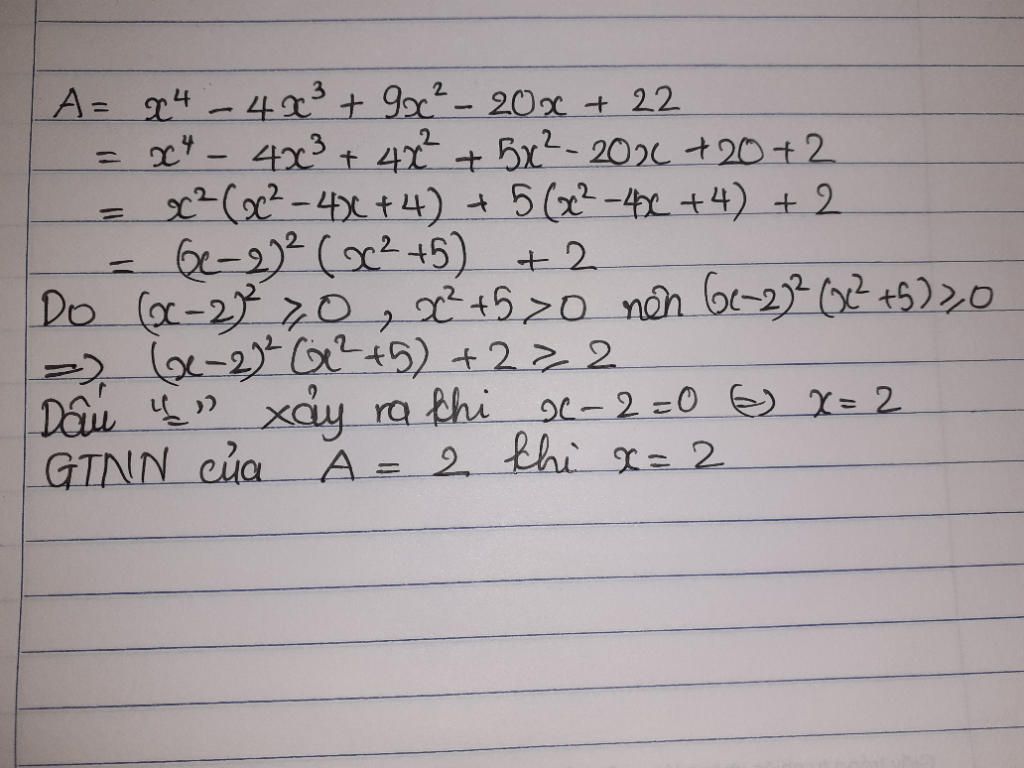 A = x⁴ - 4x³ + 9x² - 20x + 22
= x⁴ - 4x³ + 4x² + 5x² - 20x + 20 + 2
= x²(x² - 4x + 4) + 5(x² - 4x + 4) + 2
= (x - 2)² (x² + 5) + 2
Do (x - 2)² ≥ 0 , x² + 5 > 0 nên (x - 2)² (x² + 5) ≥ 0
=> (x - 2)² (x² + 5) + 2 ≥ 2
Dấu "=" xảy ra khi x - 2 = 0 <=> x = 2
GTNN của A = 2 khi x = 2